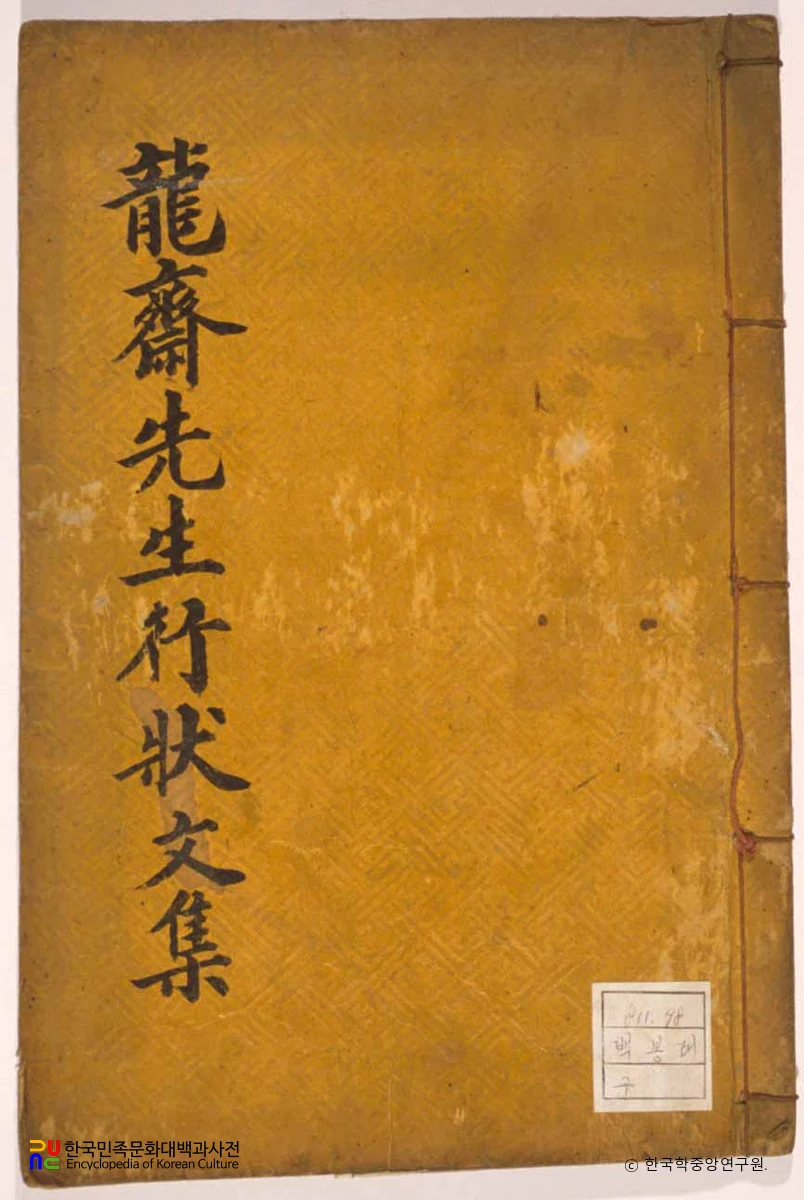 龍齋先生行狀文集
811.98
백봉태
구
한국민족문화대백과사전
Encyclopedia of Korean Culture
ⓒ 한국학중앙연구원.